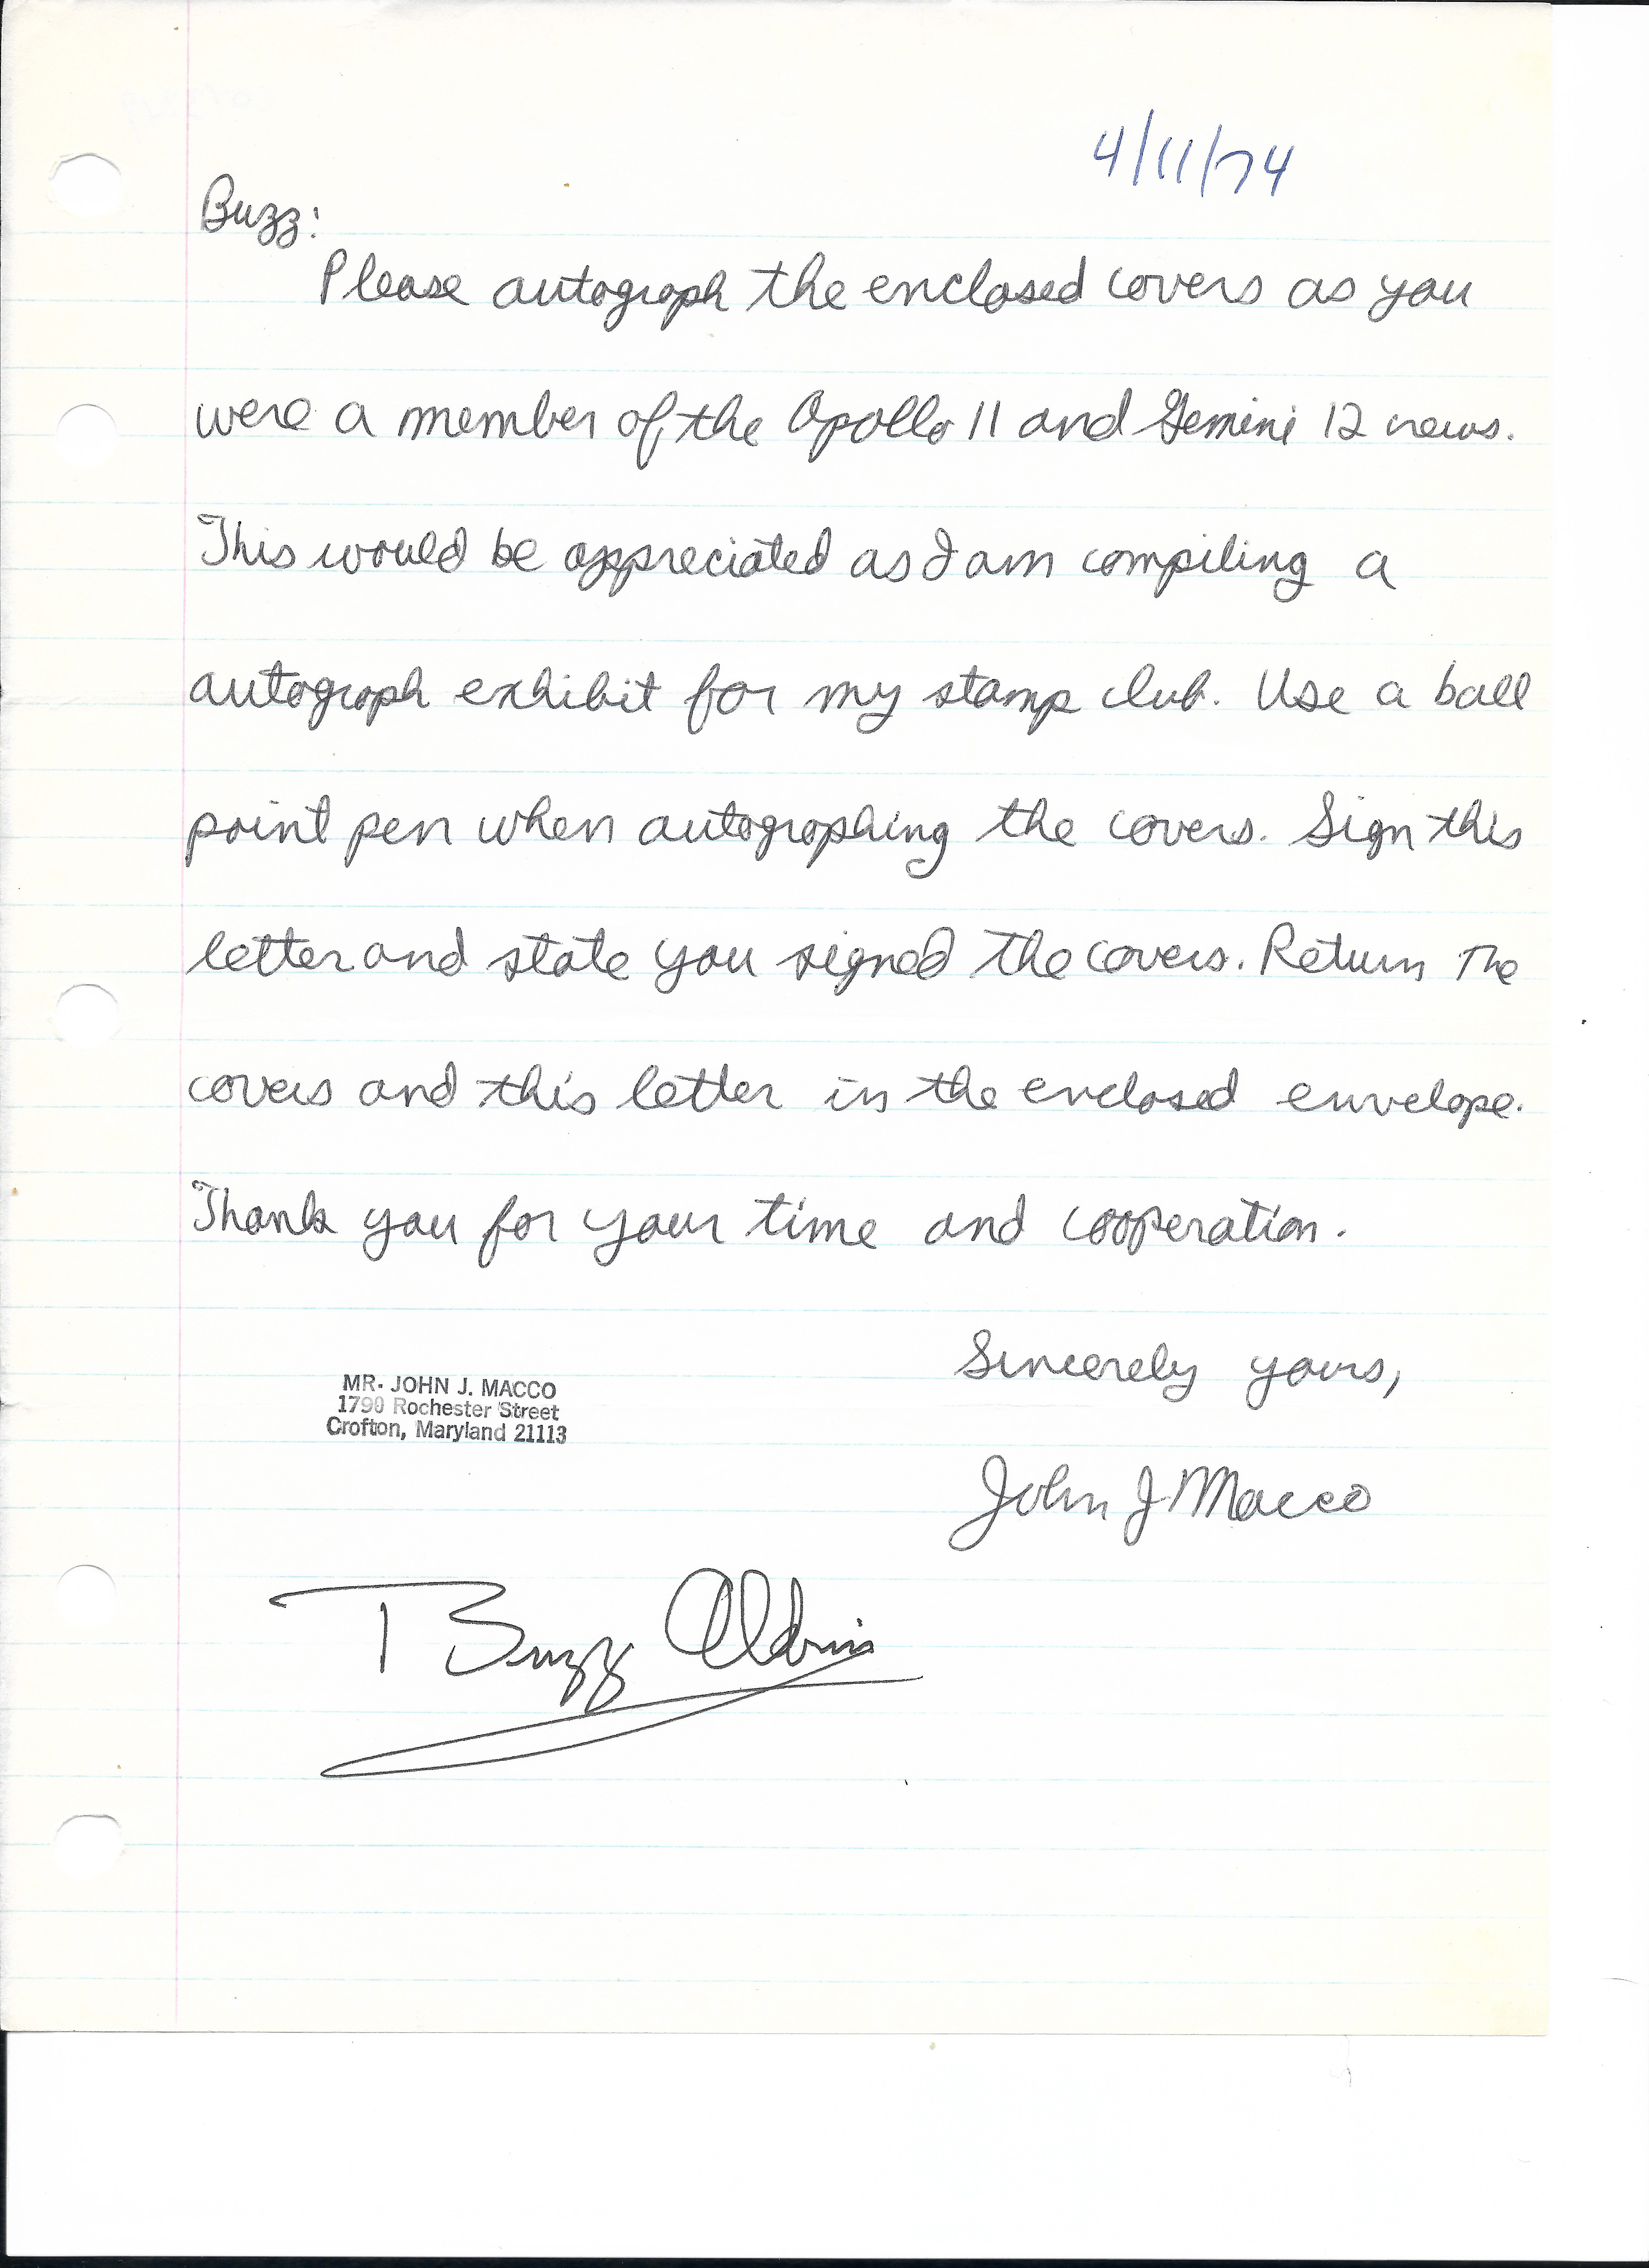 4/11/74
Buzz:
Please autograph the enclosed covers as you
were a member of the Apollo 11 and Gemini 12 crews.
This would be appreciated as I am compiling a
autograph exhibit for my stamp club. Use a ball
point pen when autographing the covers. Sign this
letter and state you signed the covers. Return the
covers and this letter in the enclosed envelope.
Thank you for your time and cooperation.
Sincerely yours,
MR. JOHN J. MACCO
1790 Rochester Street
Crofton, Maryland 21113
John J Macco
Buzz Aldrin